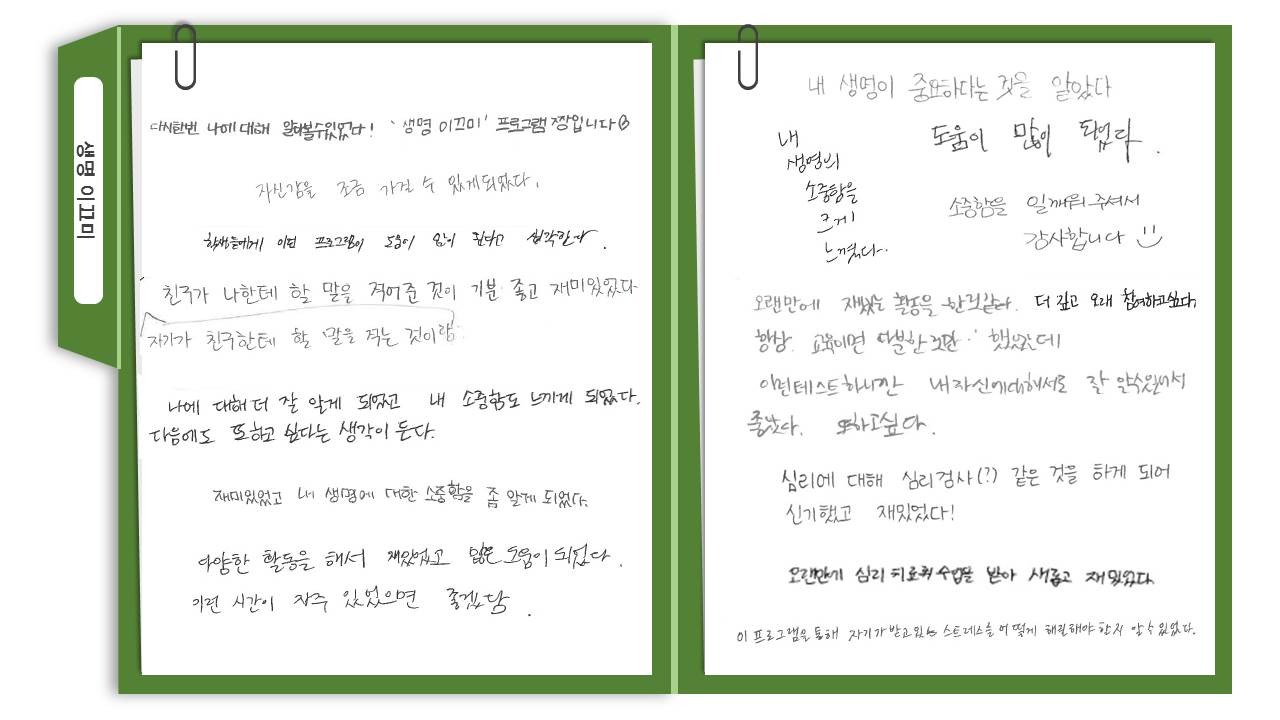 생명 이끄미
다시한번 나에 대해 알아볼수있었다! '생명 이끄미' 프로그램 짱입니다
자신감을 조금 가질 수 있게되었다.
학생들에게 이런 프로그램이 도움이 많이 된다고 생각한다.
친구가 나한테 할 말을 적어준 것이 기분 좋고 재미있었다
자기가 친구한테 할 말을 적는 것이랑
나에 대해 더 잘 알게 되었고 내 소중함도 느끼게 되었다.
다음에도 또하고 싶다는 생각이 든다.
재미있었고 내 생명에 대한 소중함을 좀 알게 되었다.
다양한 활동을 해서 재밌었고 많은 도움이 되었다.
이런 시간이 자주 있었으면 좋겠당.
내 생명이 중요하다는 것을 알았다
도움이 많이 되었다.
내
생명의
소중함을
크게
느꼈다..
소중함을 일깨워주셔서
감사합니다
오랜만에 재밌는 활동을 한것같다. 더 깊고 오래 참여하고싶다.
항상 교육이면 따분한것만 했었는데
이런테스트하니깐 내자신에대해서도 잘 알수있어서
좋았다. 또하고싶다.
심리에 대해 심리검사(?) 같은 것을 하게 되어
신기했고 재밌었다!
오랜만에 심리 수업을 받아 새롭고 재밌었다.
이 프로그램을 통해 자기가 받고있는 스트레스를 어떻게 해결해야 한지 알 수 있었다.